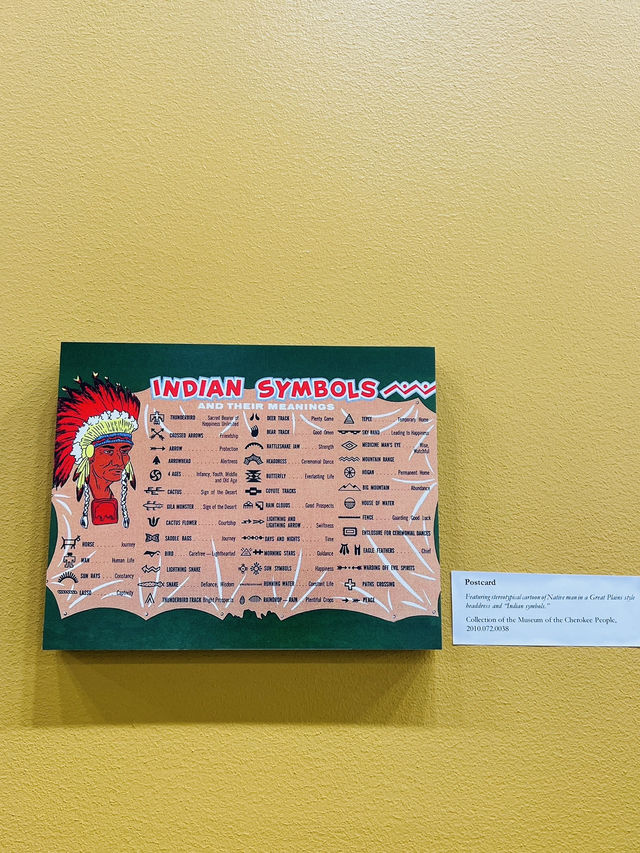 INDIAN SYMBOLS
AND THEIR MEANINGS
THUNDERBIRD Sacred Bearer of
Happiness Unlimited
CROSSED ARROWS Friendship
ARROW Protection
ARROWHEAD Alertness
4 AGES Infancy, Youth, Middle
and Old Age
CACTUS Sign of the Desert
GILA MONSTER Sign of the Desert
CACTUS FLOWER Courtship
SADDLE BAGS Journey
BIRD Carefree — Lighthearted
LIGHTNING SNAKE
SNAKE Defiance, Wisdom
THUNDERBIRD TRACK Bright Prospects
HORSE Journey
MAN Human Life
SUN RAYS Constancy
LASSO Captivity
DEER TRACK Plenty Game
BEAR TRACK Good Omen
RATTLESNAKE JAW Strength
HEADDRESS Ceremonial Dance
BUTTERFLY Everlasting Life
COYOTE TRACKS
RAIN CLOUDS Good Prospects
LIGHTNING AND
LIGHTNING ARROW Swiftness
DAYS AND NIGHTS Time
MORNING STARS Guidance
SUN SYMBOLS Happiness
RUNNING WATER Constant Life
RAINDROP — RAIN Plentiful Crops
TEPEE Temporary Home
SKY BAND Leading to Happiness
MEDICINE MAN'S EYE Wise,
Watchful
MOUNTAIN RANGE
HOGAN Permanent Home
BIG MOUNTAIN Abundance
HOUSE OF WATER
FENCE Guarding Good Luck
ENCLOSURE FOR CEREMONIAL DANCES
EAGLE FEATHERS Chief
WARDING OFF EVIL SPIRITS
PATHS CROSSING
PEACE
Postcard
Featuring stereotypical cartoon of Native man in a Great Plains style
headdress and "Indian symbols."
Collection of the Museum of the Cherokee People,
2010.072.0038